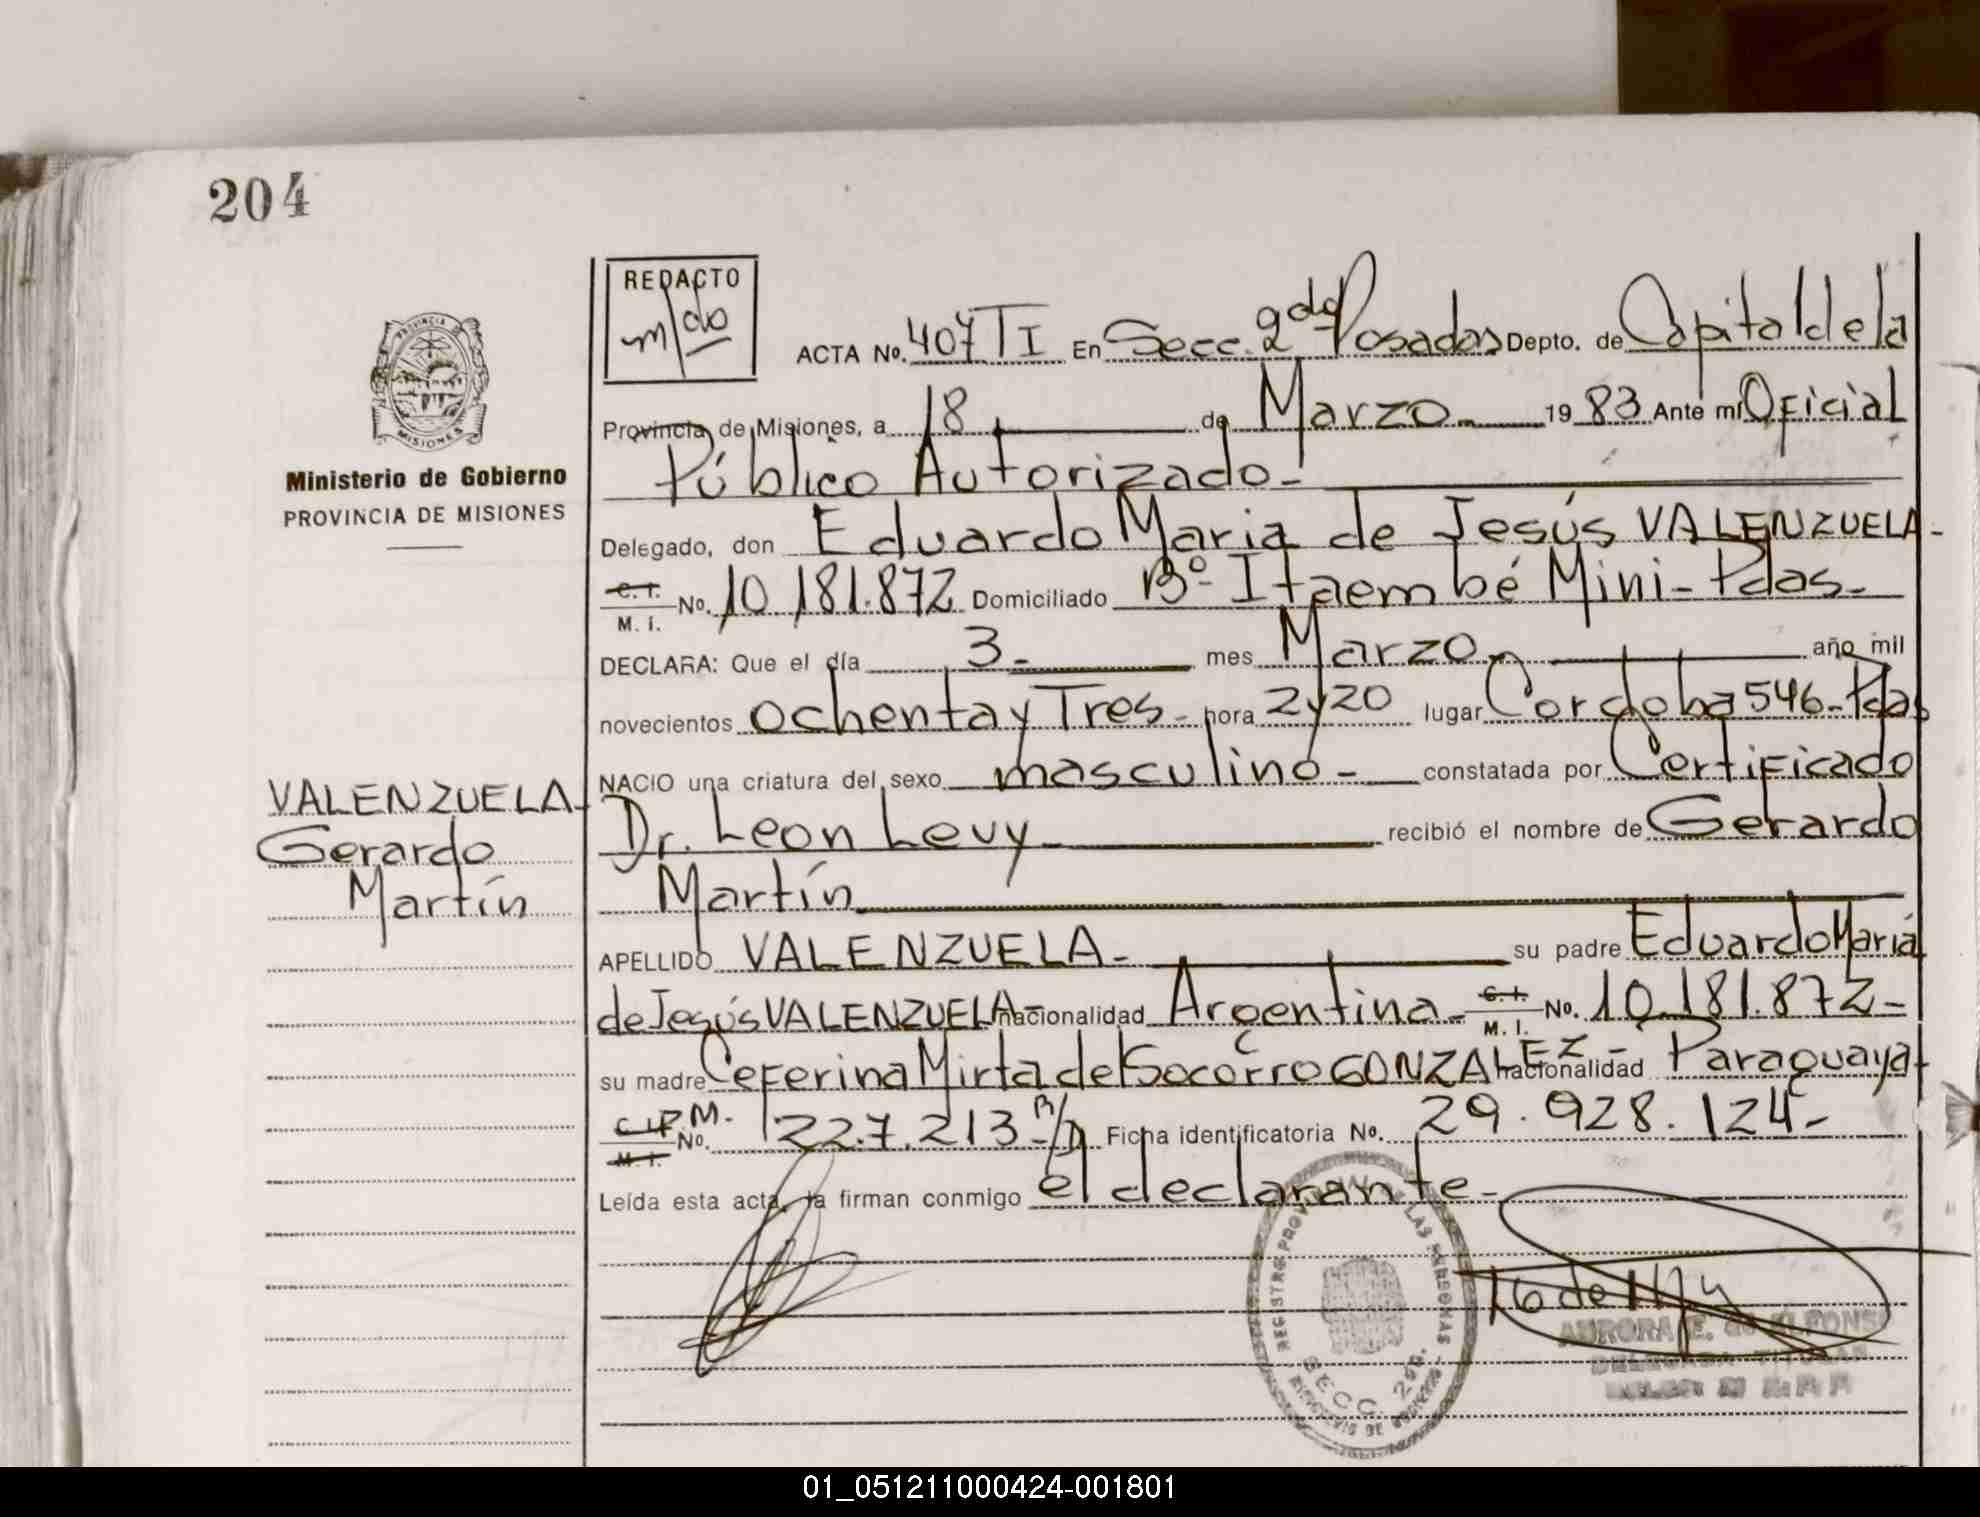 204
REDACTO
m/do
ACTA No. 407 TI En Secc. 2da Posadas Depto. de Capital de la
Provincia de Misiones, a 18 de Marzo 1983 Ante mí Oficial
Público Autorizado-
PROVINCIA DE
MISIONES
Ministerio de Gobierno
PROVINCIA DE MISIONES
Delegado, don Eduardo Maria de Jesús VALENZUELA-
C.I.
M. I. No. 10.181.872 Domiciliado Bº- Itaembé Mini- Pdas-
DECLARA: Que el día 3- mes Marzo año mil
novecientos ochenta y Tres- hora 2y20 lugar Cordoba 546- Pdas
NACIO una criatura del sexo masculino- constatada por Certificado
Dr. Leon Levy recibió el nombre de Gerardo
Martín
VALENZUELA-
Gerardo
Martín
APELLIDO VALENZUELA- su padre Eduardo María
de Jesús VALENZUELA nacionalidad Argentina- C.I.
M. I. No. 10.181.872-
su madre Ceferina Mirta del Socorro GONZALEZ- nacionalidad Paraguaya-
M. I. No. 227.213- Ficha identificatoria No. 29.928.124-
Leída esta acta, la firman conmigo el declarante-
REGISTRO PROVINCIAL DE LAS PERSONAS
SECC. 2da.
MINISTERIO DE GOBIERNO
AURORA E. de ALFONSO
DELEGADA TITULAR
01_051211000424-001801